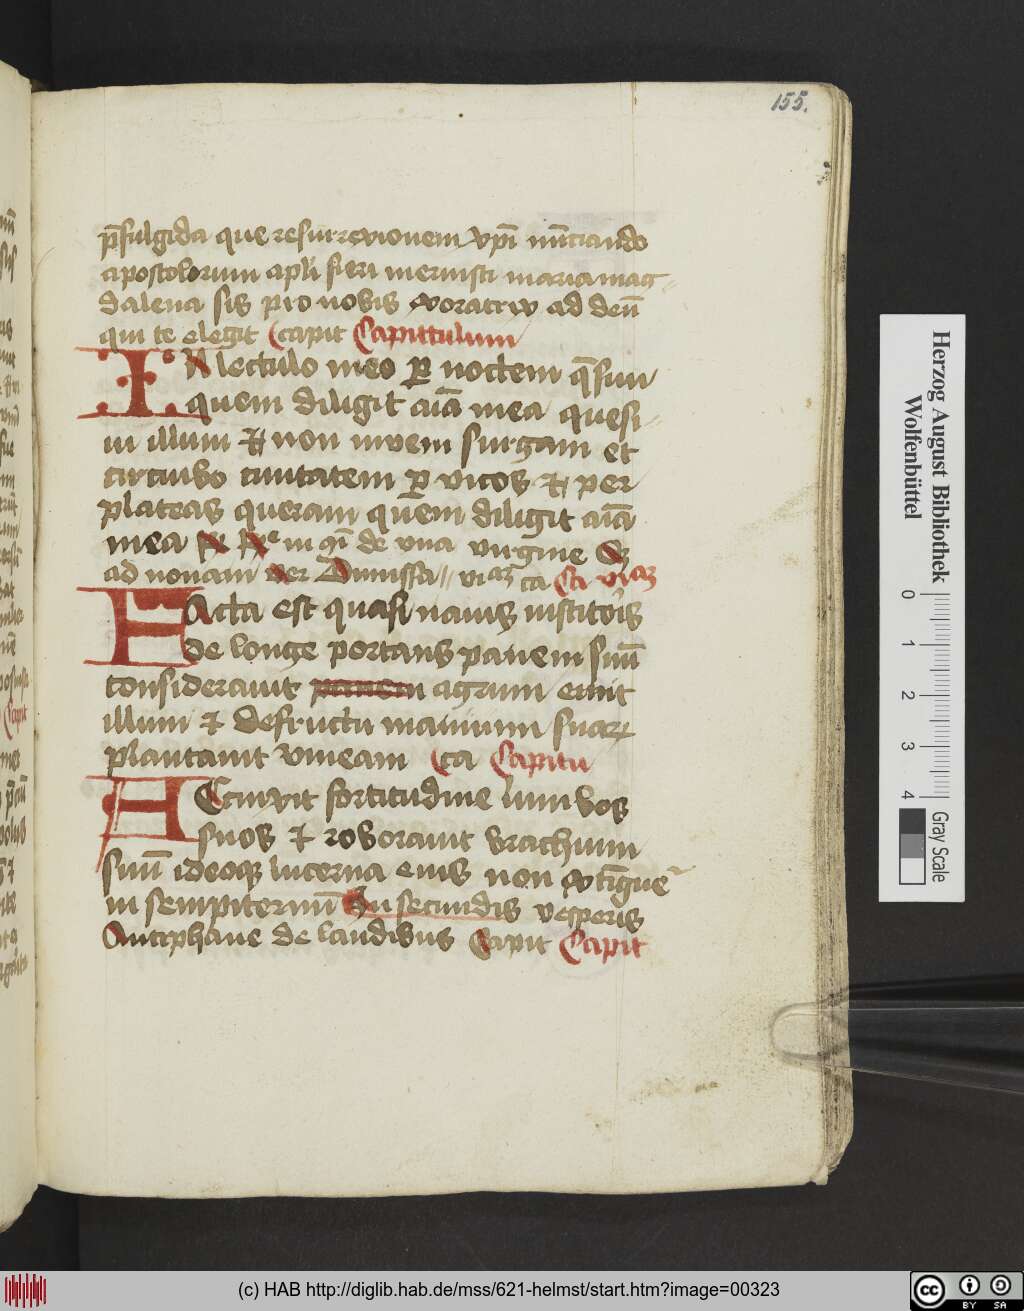 155.
p̄fulgida que resurrexionem xp̄i nūctando
apostolorum apl̄i fieri meruisti maria mag⸗
dalena sis pro nobis exoratrix ad deū
qui te elegit Capit Capittulum
IN lectulo meo ꝑ noctem q̄siui
quem diligit aīa mea quesi⸗
ui illum ⁊ non inueni surgam et
circuibo ciuitatem ꝑ vicos ⁊ per
plateas queram quem diligit aīa
mea in qī de vna virgine
ad nonam Dimissa
FActa est quasi nauis institoris
de longe portans panem suū
considerauit panem agrum emit
illum ⁊ de fructu manuum suaꝝ
plantauit vineam Ca Capitu
ACcinxit fortitudine lumbos
suos ⁊ roborauit brachium
suū ideoqꝫ lucerna eius non extīgue
in sempiternū In secundis vesperis
Antiphane de laudibus Capit Capit
Herzog August Bibliothek
Wolfenbüttel
0 1 2 3 4
Gray Scale
(c) HAB http://diglib.hab.de/mss/621-helmst/start.htm?image=00323
cc BY SA